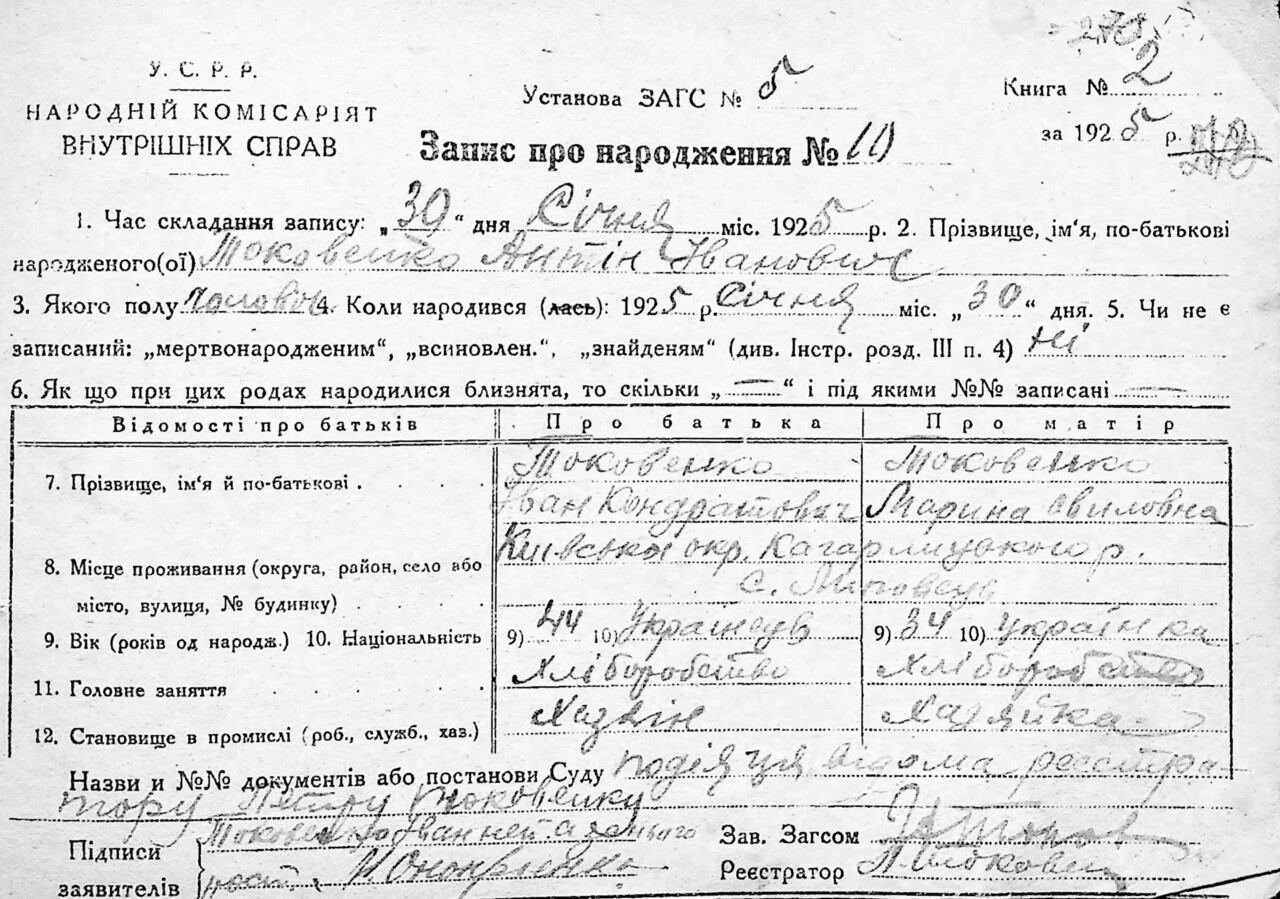 У. С. Р. Р.
НАРОДНІЙ КОМІСАРІЯТ
ВНУТРІШНІХ СПРАВ
Установа ЗАГС № 5
Книга № 2
за 1925 р.
Запис про народження № 10
1. Час складання запису: „30“ дня Січня міс. 1925 р. 2. Прізвище, ім'я, по-батькові
народженого(ої) Токовенко Антін Іванович
3. Якого полу чоловоч 4. Коли народився (лась): 1925 р. Січня міс. „30“ дня. 5. Чи не є
записаний: „мертвонародженим“, „всиновлен.“, „знайденям“ (див. Інстр. розд. III п. 4) Ні
6. Як що при цих родах народилися близнята, то скільки „—“ і під якими №№ записані —
Відомості про батьків Про батька Про матір
7. Прізвище, ім'я й по-батькові Токовенко Іван Кондратович Токовенко Марина
8. Місце проживання (округа, район, село або
місто, вулиця, № будинку) Київської окр. Кагарлицького р.
с.
9. Вік (років од народж.) 10. Національність 9) 44 10) Українець 9) 34 10) Українка
11. Головне заняття Хліборобство Хліборобство
12. Становище в промислі (роб., служб., хаз.) Хазяін Хазяйка
Назви и №№ документів або постанови Суду подія ця відома реєстра
тору Петру Токовенку
Підписи
заявителів
Токовенко Іван
Оноприенко
Зав. Загсом
Реєстратор